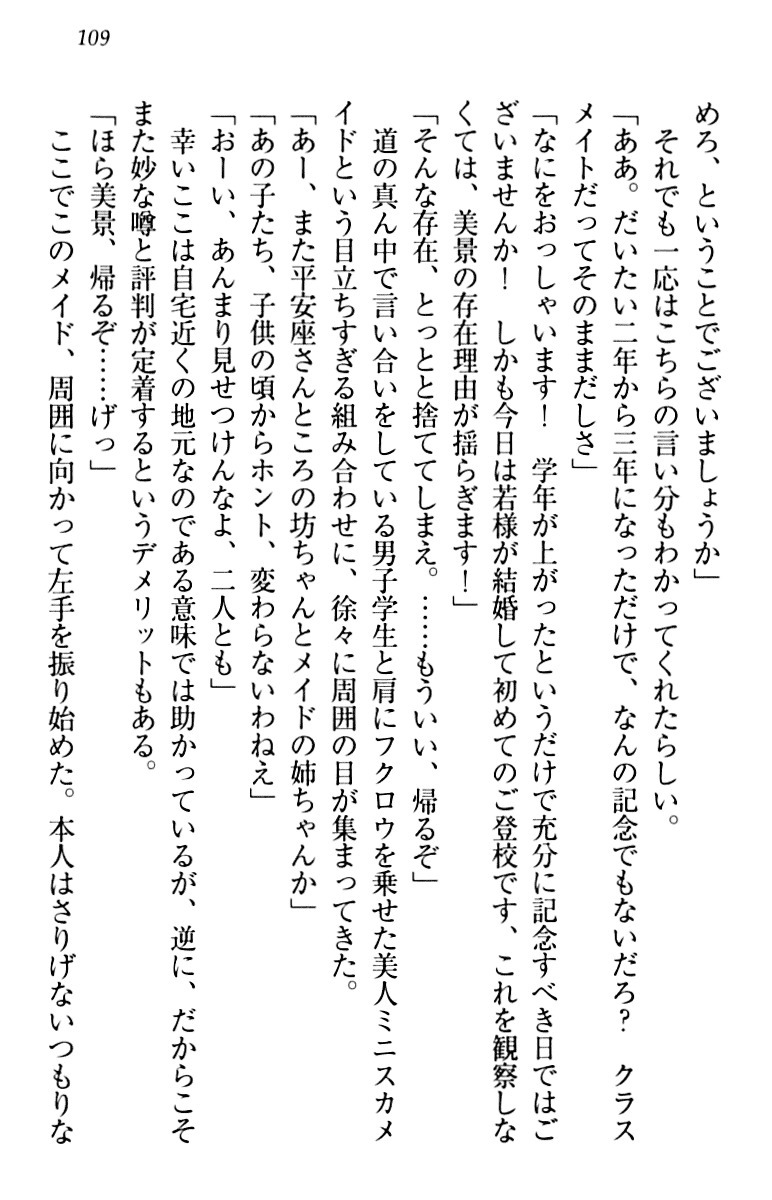 109
めろ、ということでございましょうか」
　それでも一応はこちらの言い分もわかってくれたらしい。
「ああ。だいたい二年から三年になっただけで、なんの記念でもないだろ？　クラス
メイトだってそのままだしさ」
「なにをおっしゃいます！　学年が上がったというだけで充分に記念すべき日ではご
ざいませんか！　しかも今日は若様が結婚して初めてのご登校です、これを観察しな
くては、美景の存在理由が揺らぎます！」
「そんな存在、とっとと捨ててしまえ。……もういい、帰るぞ」
　道の真ん中で言い合いをしている男子学生と肩にフクロウを乗せた美人ミニスカメ
イドという目立ちすぎる組み合わせに、徐々に周囲の目が集まってきた。
「あー、また平安座さんところの坊ちゃんとメイドの姉ちゃんか」
「あの子たち、子供の頃からホント、変わらないわねえ」
「おーい、あんまり見せつけんなよ、二人とも」
　幸いここは自宅近くの地元なのである意味では助かっているが、逆に、だからこそ
また妙な噂と評判が定着するというデメリットもある。
「ほら美景、帰るぞ……げっ」
　ここでこのメイド、周囲に向かって左手を振り始めた。本人はさりげないつもりな